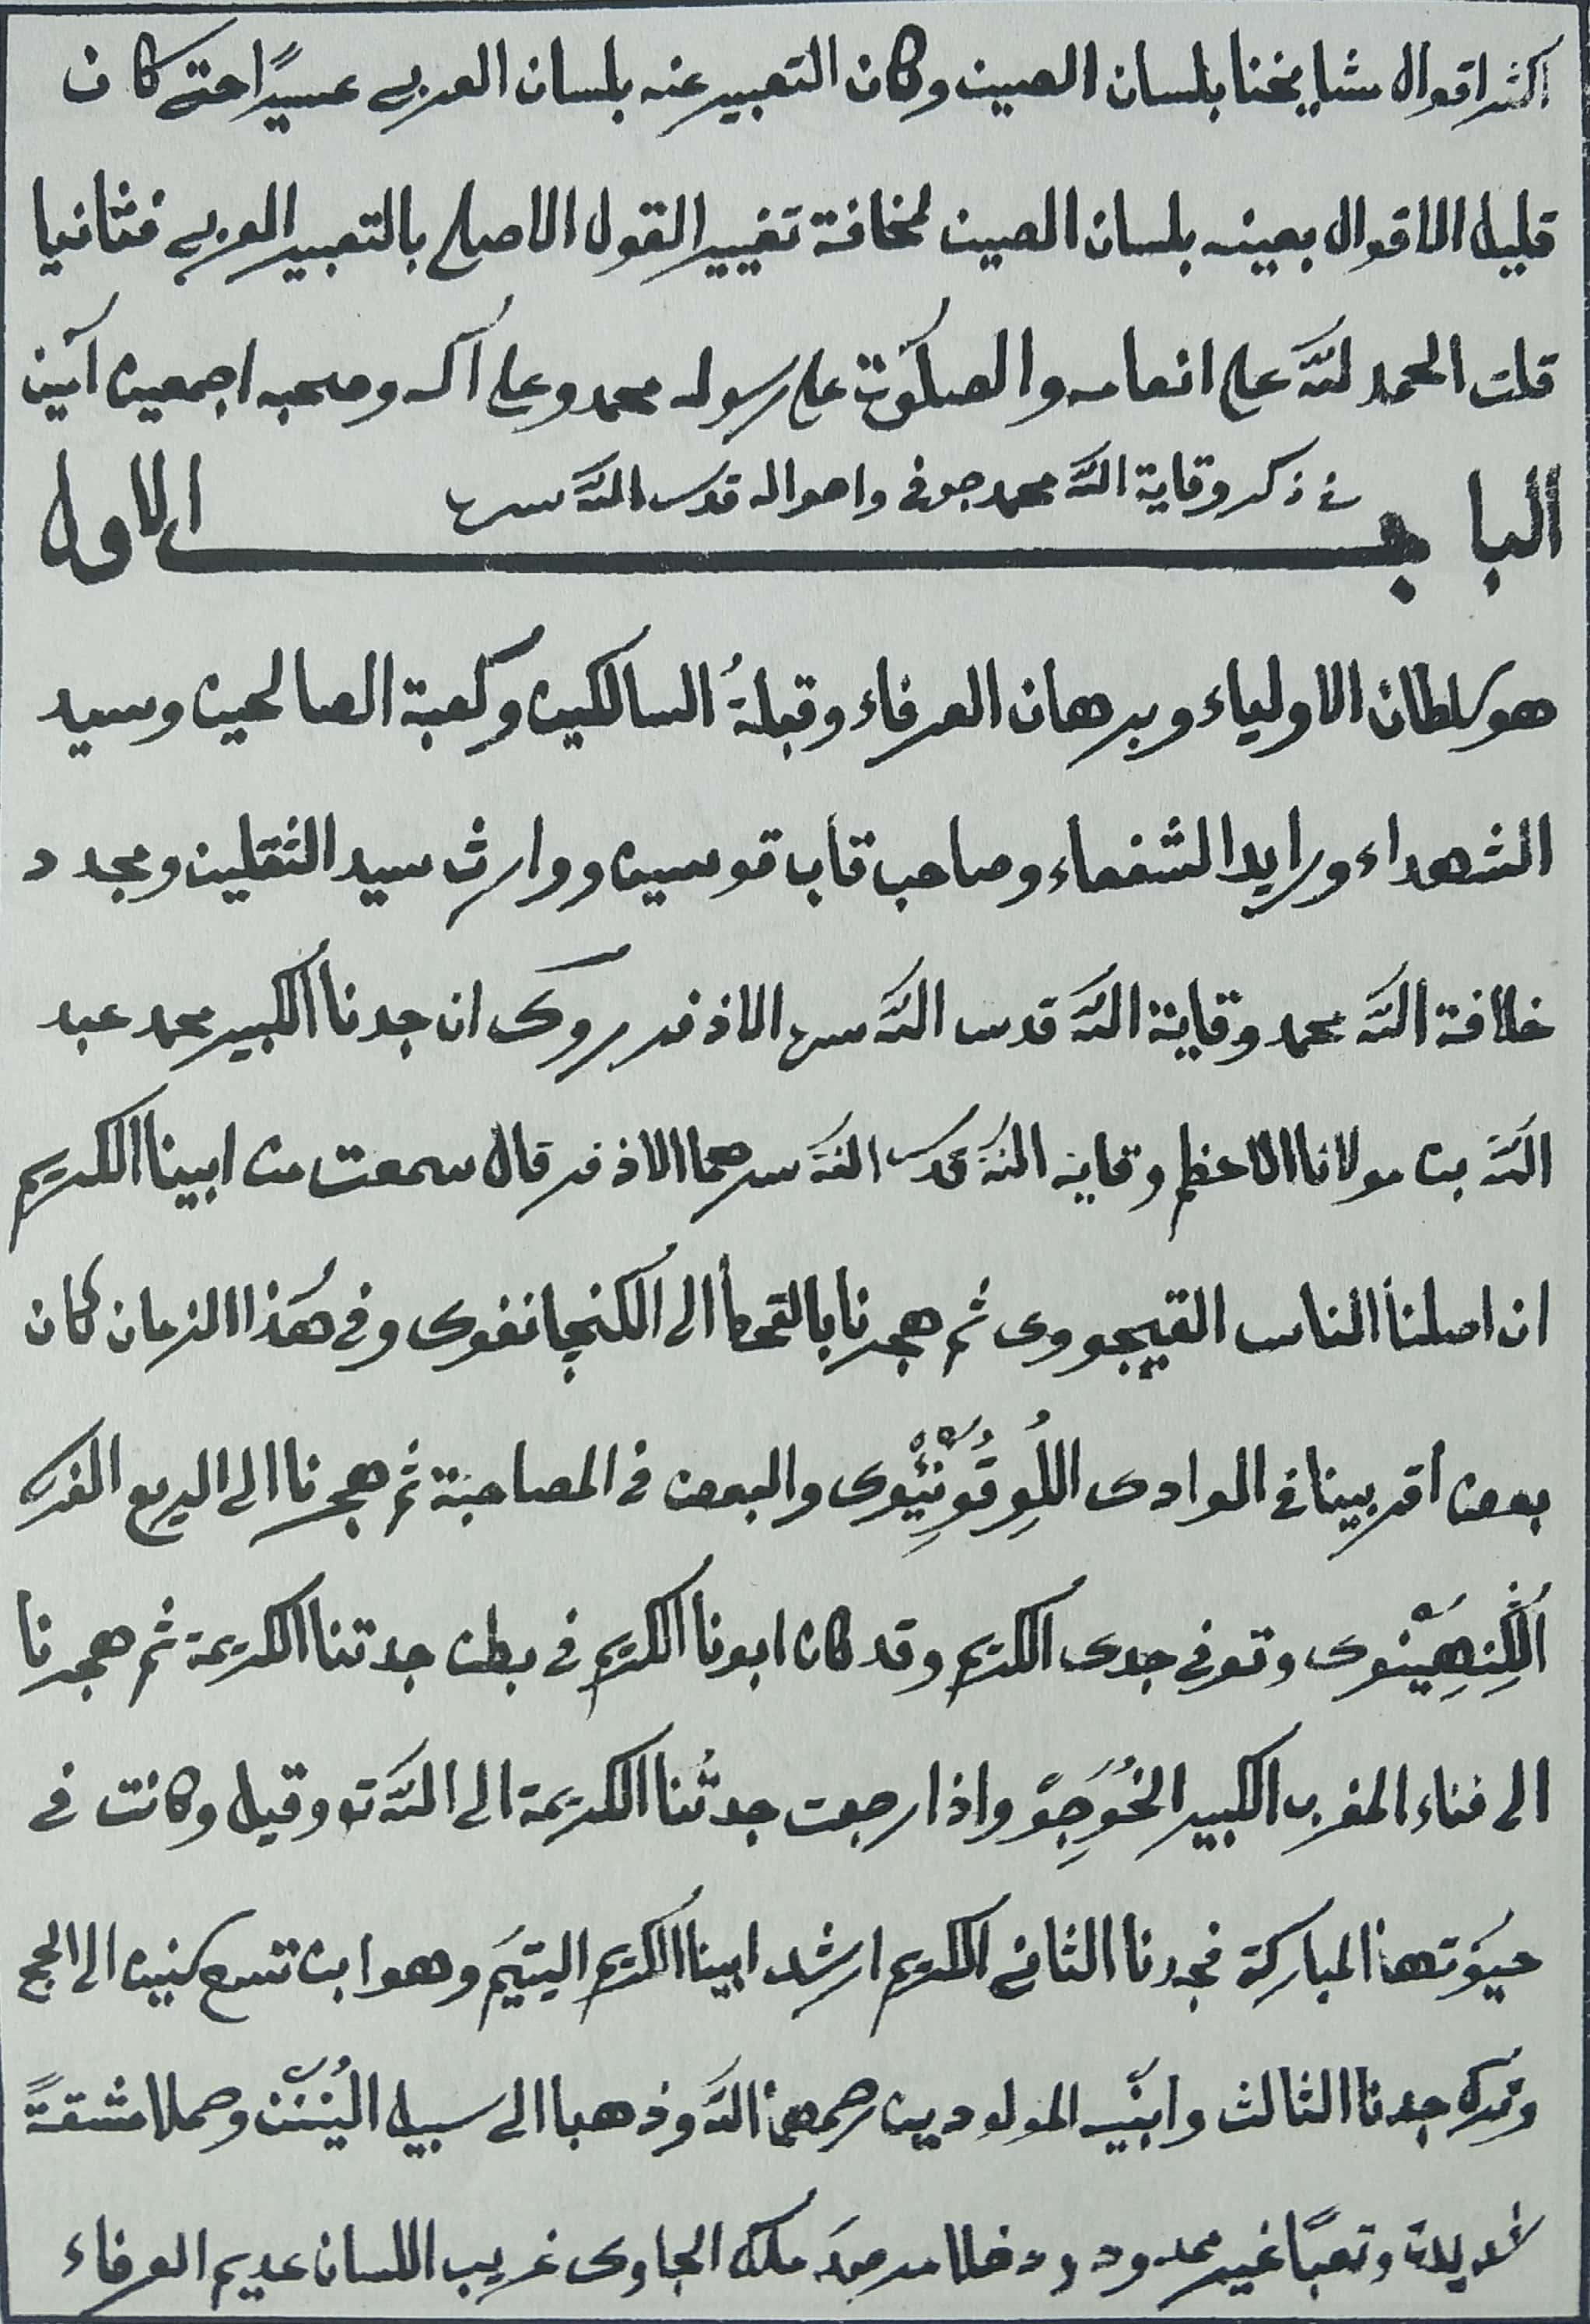 اكثر اقوال مشايخنا بلسان الصين وكان التعبير عنه بلسان العربي عسيرًا حتى كان
قليل الاقوال بعينه بلسان الصين لمخافة تغيير القول الاصلي بالتعبير العربي فثانيا
قلت الحمد لله على انعامه والصلوة على رسوله محمد وعلى آله وصحبه اجمعين آمين
الباب الاول
في ذكر وقاية الله محمد جوفي واحواله قدس الله سره
هو سلطان الاولياء وبرهان العرفاء وقبلة السالكين وكعبة الصالحين وسيد
الشهداء ورايد الشفعاء وصاحب قاب قوسين ووارث سيد الثقلين ومجدد
خلافة الله محمد وقاية الله قدس الله سره الاذفر روى ان جدنا الكبير محمد عبد
الله بن مولانا الاعظم وقاية الله قدس الله سرهما الاذفر قال سمعت من ابينا الكريم
ان اصلنا الناس القيجووى ثم هجرنا بالقحط الى الكنچانفوى وفي هذا الزمان كان
بعض أقربينا في الوادى والبعض في المصاحبة ثم هجرنا الى الربع الغرب
وتوفي جدى الكريم وقد كان ابونا الكريم في بطن جدتنا الكريمة ثم هجرنا
الى فناء المغرب الكبير الخُوجِوّ واذا رجعت جدتُنا الكريمة الى الله ته وقيل وكانت في
حيوتها المباركة فجدنا الثاني الكريم ارشد ابينا الكريم اليتيَم وهو ابن تسع سنين الى الحج
وترك جدنا الثالث المولودين رحمهما الله وذهبا الى سبيل اليُنَنَن وحملا مشقةً
شديدة وتعبًا غير محدود ودخلا ملك الجاوى غريب اللسان عديم العرفاء